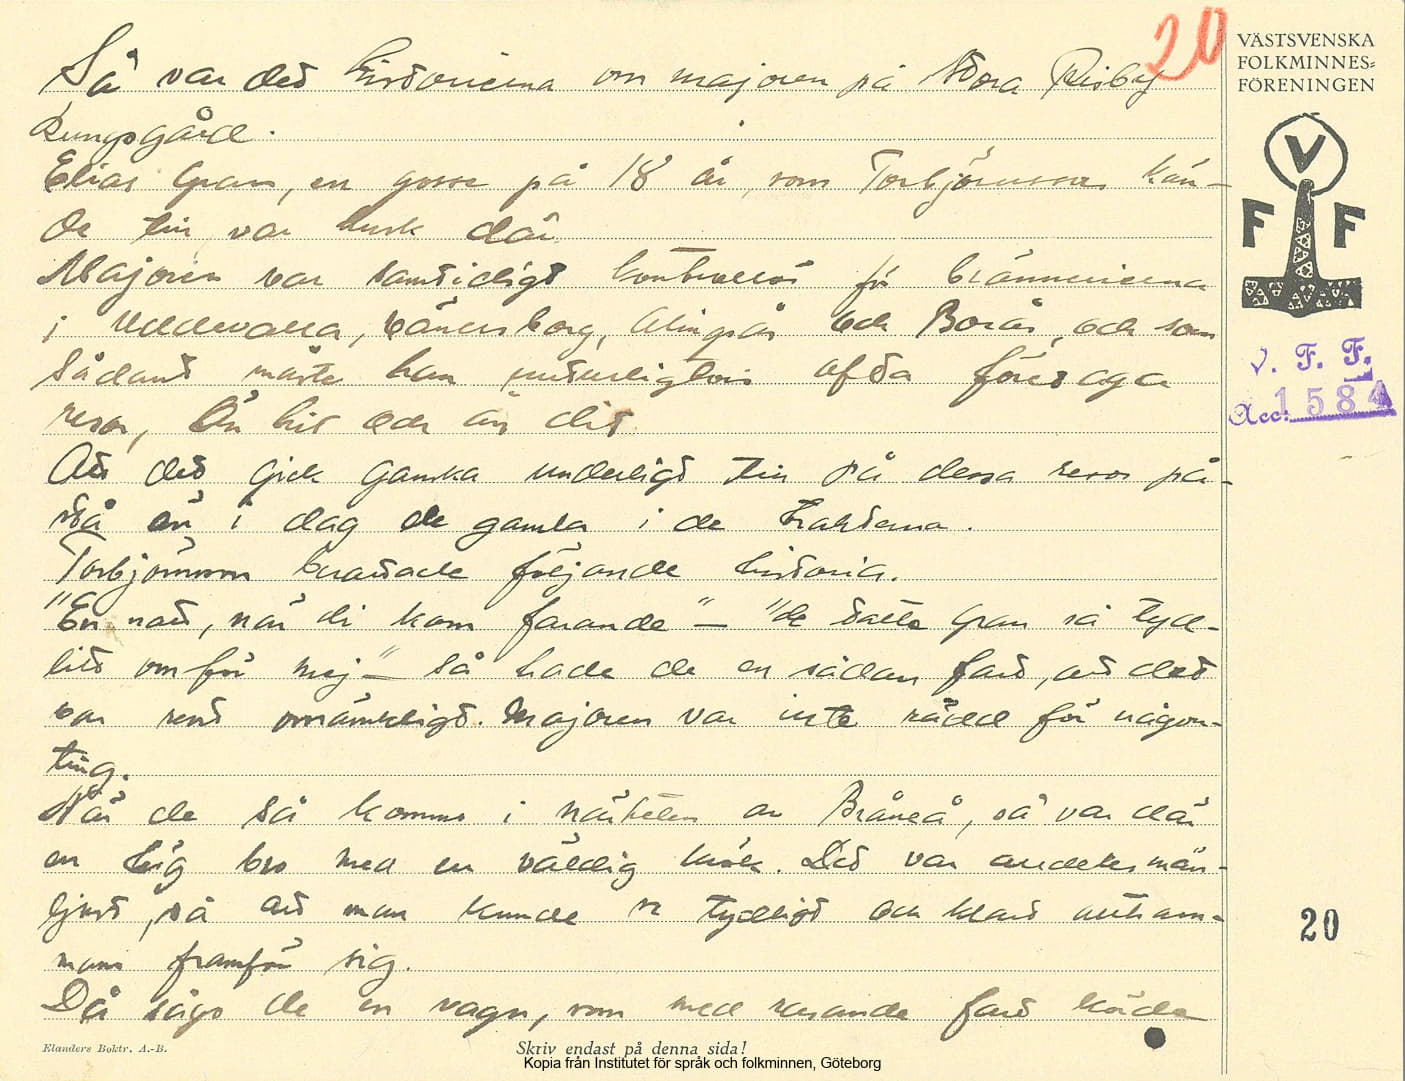 20
VÄSTSVENSKA
FOLKMINNES-
FÖRENINGEN
V
F F
V. F. F.
Acc. 1584
Så var det historierna om majoren på Stora Risby
kungsgård.
Elias Gran, en gosse på 18 år, som Torbjörnsson kän-
de till, var kusk där.
Majoren var samtidigt kontrollör för brännerierna
i Uddevalla, Vänersborg, Alingsås och Borås, och som
sådant måste han naturligtvis ofta företaga
resor, än hit och än dit
Att det gick ganska underligt till på dessa resor på-
stå än i dag de gamla i de trakterna.
Torbjörnsson berättade följande historia.
"En natt, när di kom farande" – "de talte Gran så tyd-
litt om för mej" – så hade de en sådan fart, att det
var rent omänskligt. Majoren var inte rädd för någon-
ting.
När de så komma i närheten av Bråneå, så var där
en låg bro med en väldig krök. Det var alldeles mån-
ljust, så att man kunde se tydligt och klart alltsam-
mans framför sig.
Då sågo de en vagn, som med rasande fart körde
20
Elanders Boktr. A.-B.
Skriv endast på denna sida!
Kopia från Institutet för språk och folkminnen, Göteborg